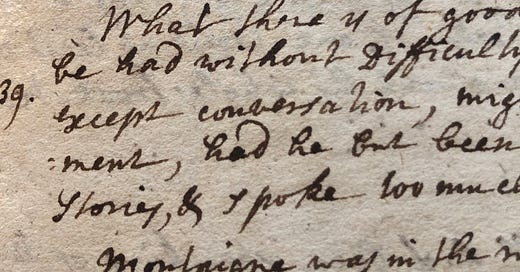 What there is of good
be had without Difficulty
39. except conversation, mig
:ment, had he but been
stories, & spoke too much
Montaigne was in the